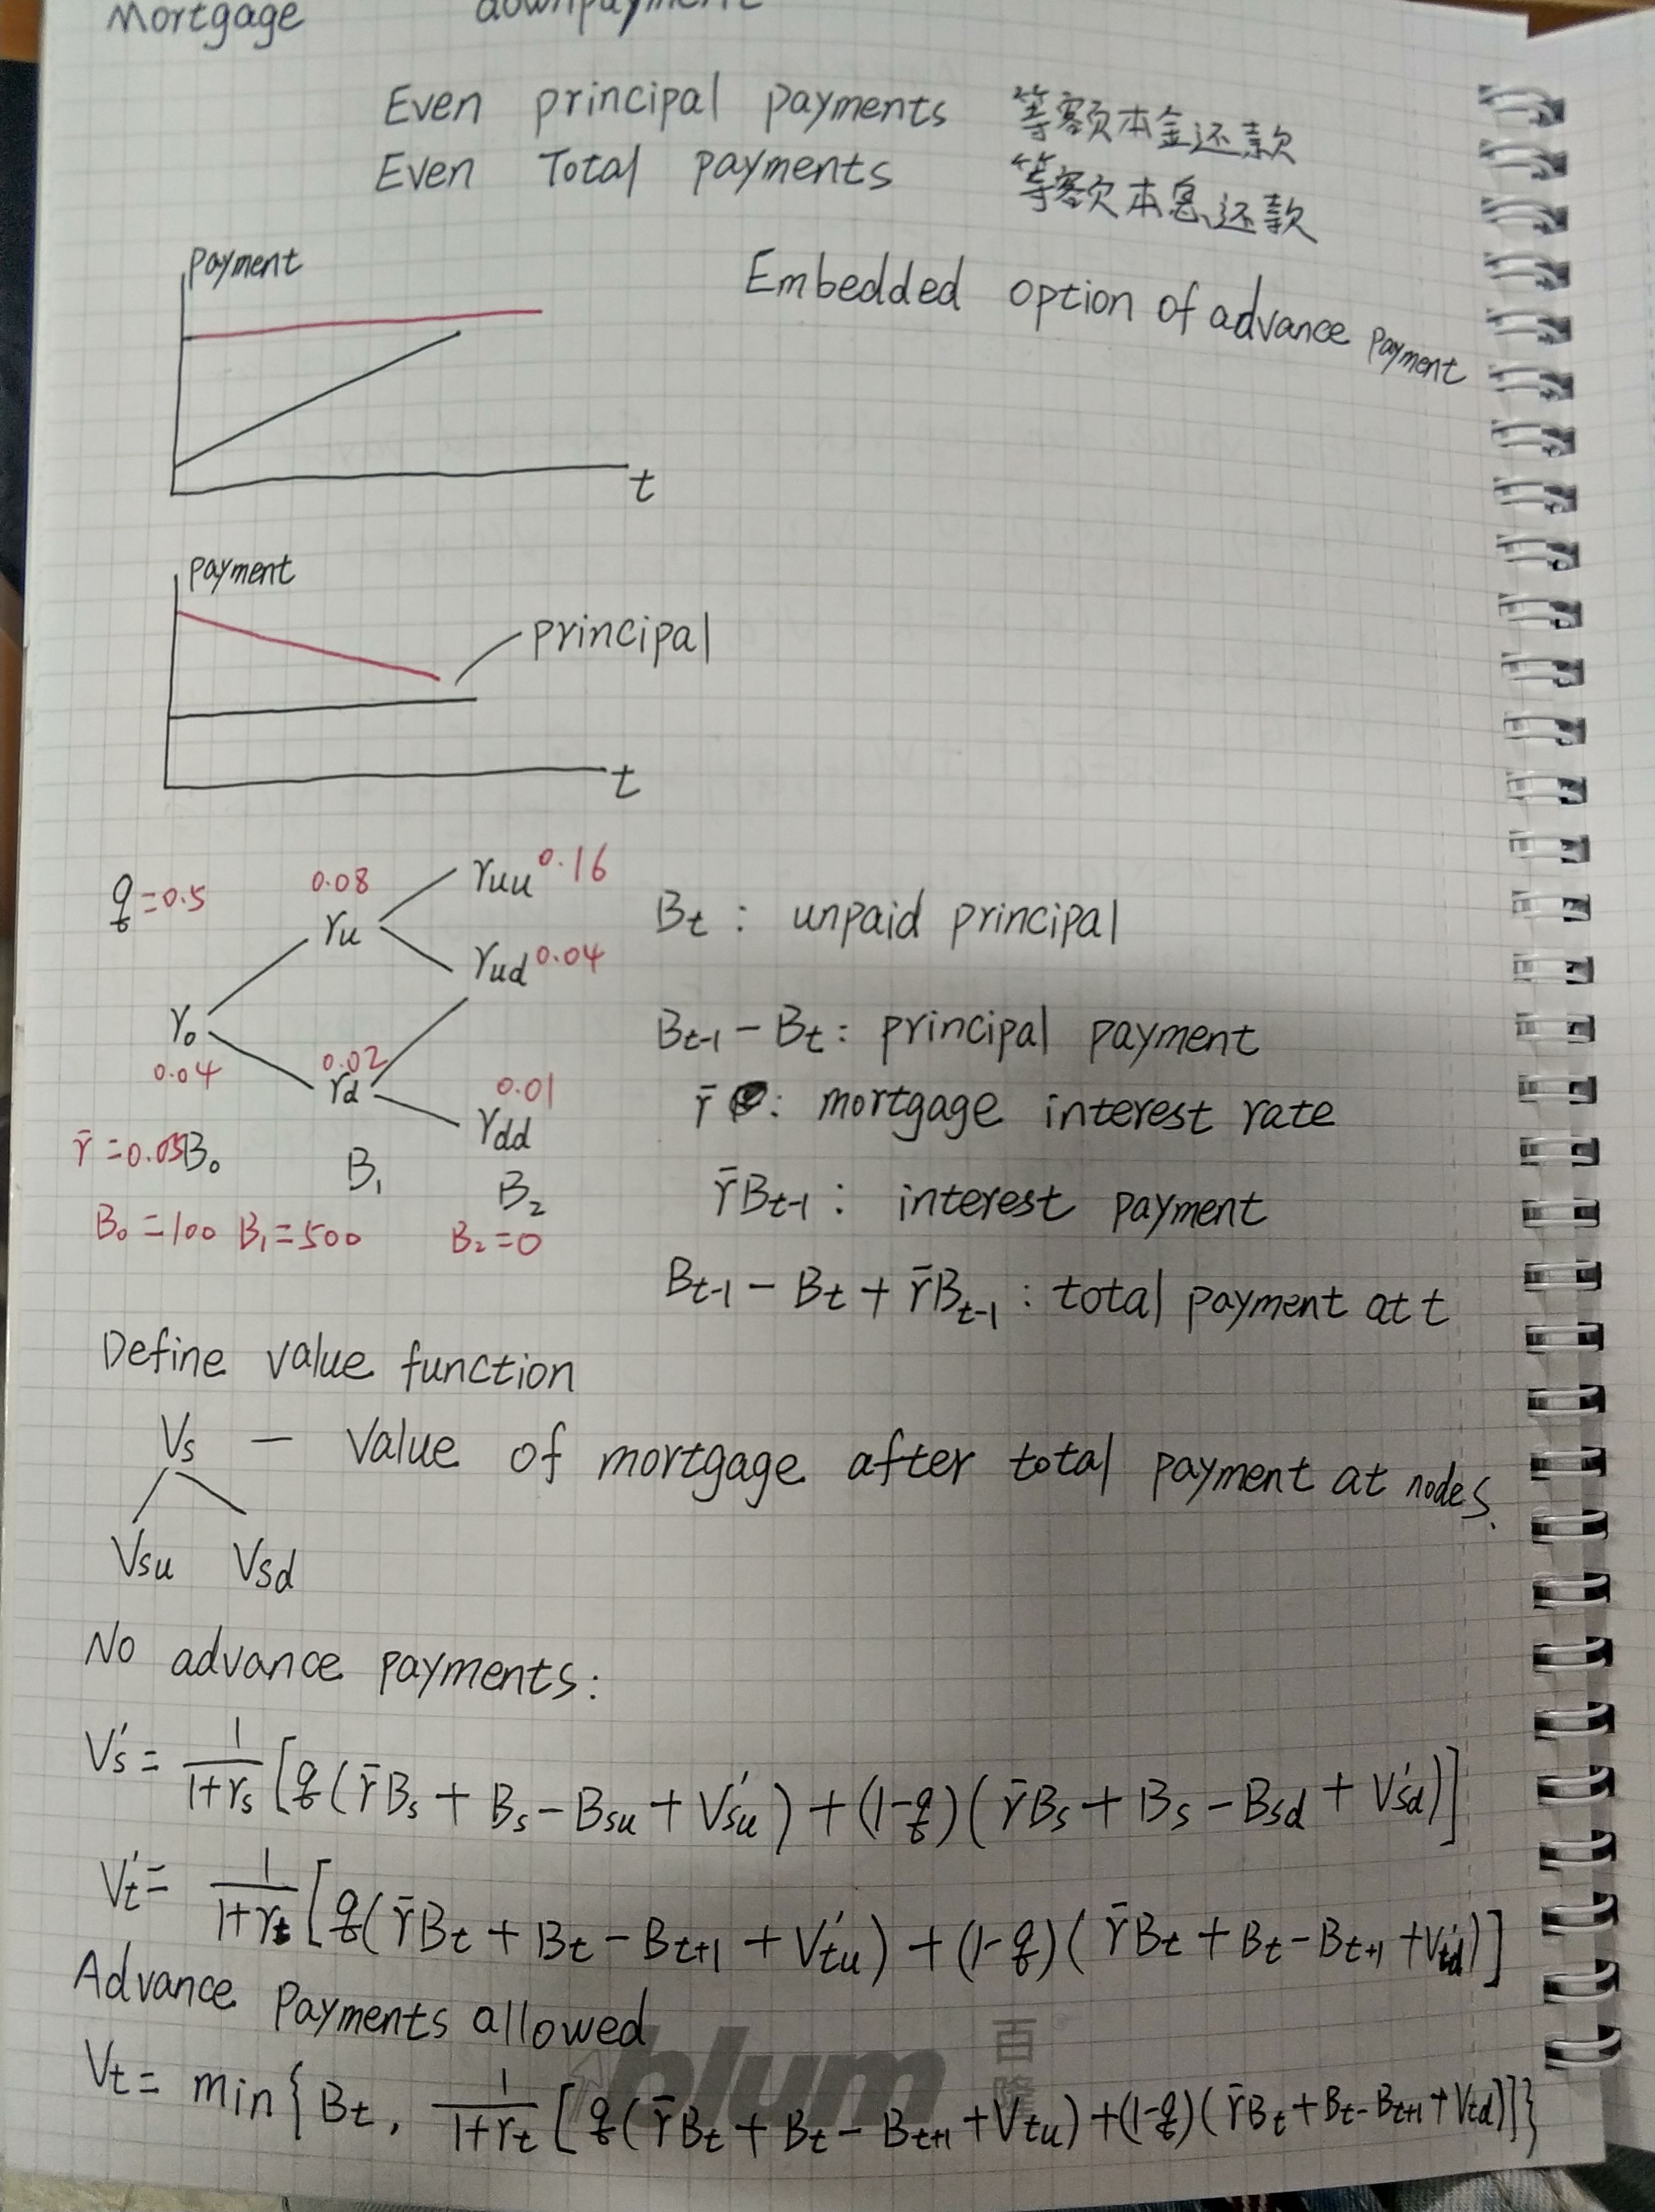 Mortgage downpayment
Even principal payments 等额本金还款
Even Total payments 等额本息还款
payment
Embedded option of advance payment
t
payment
principal
t
q=0.5
0.08
ru
ruu 0.16
rud 0.04
r₀
0.04
0.02
rd
0.01
rdd
Bt : unpaid principal
Bt-1 − Bt : principal payment
r̄ : mortgage interest rate
r̄ = 0.05 B₀ B₁ B₂
r̄Bt-1 : interest payment
B₀ = 100 B₁ = 500 B₂ = 0
Bt-1 − Bt + r̄Bt-1 : total payment at t
Define value function
Vs — Value of mortgage after total payment at node s.
Vsu Vsd
No advance payments:
V's = 1/(1+rs) [q(r̄Bs + Bs − Bsu + V'su) + (1-q)(r̄Bs + Bs − Bsd + V'sd)]
V't = 1/(1+rt) [q(r̄Bt + Bt − Bt+1 + V'tu) + (1-q)(r̄Bt + Bt − Bt+1 + V'td)]
Advance Payments allowed
Vt = min{Bt, 1/(1+rt) [q(r̄Bt + Bt − Bt+1 + Vtu) + (1-q)(r̄Bt + Bt − Bt+1 + Vtd)]}
blum 百隆